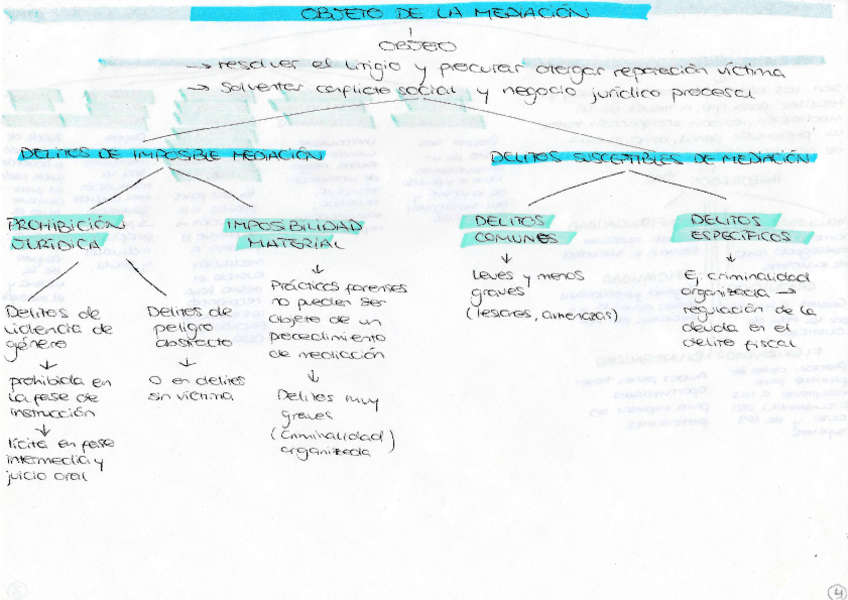 OBJETO DE LA MEDIACIÓN
OBJETO
→ resolver el litigio y procurar otorgar reparación víctima
→ Solventar conflicto social y negocio jurídico procesal
DELITOS DE IMPOSIBLE MEDIACIÓN
DELITOS SUSCEPTIBLES DE MEDIACIÓN
PROHIBICIÓN
JURÍDICA
IMPOSIBILIDAD
MATERIAL
DELITOS
COMUNES
DELITOS
ESPECÍFICOS
Delitos de
violencia de
género
prohibida en
la fase de
instrucción
lícita en fase
intermedia y
juicio oral
Delitos de
peligro
abstracto
o en delitos
sin víctima
Prácticas forenses
no pueden ser
objeto de un
procedimiento
de mediación
Delitos muy
graves
(criminalidad)
organizada
Leves y menos
graves
(lesiones, amenazas)
Ej criminalidad
organizada →
regulación de la
deuda en el
delito fiscal
4